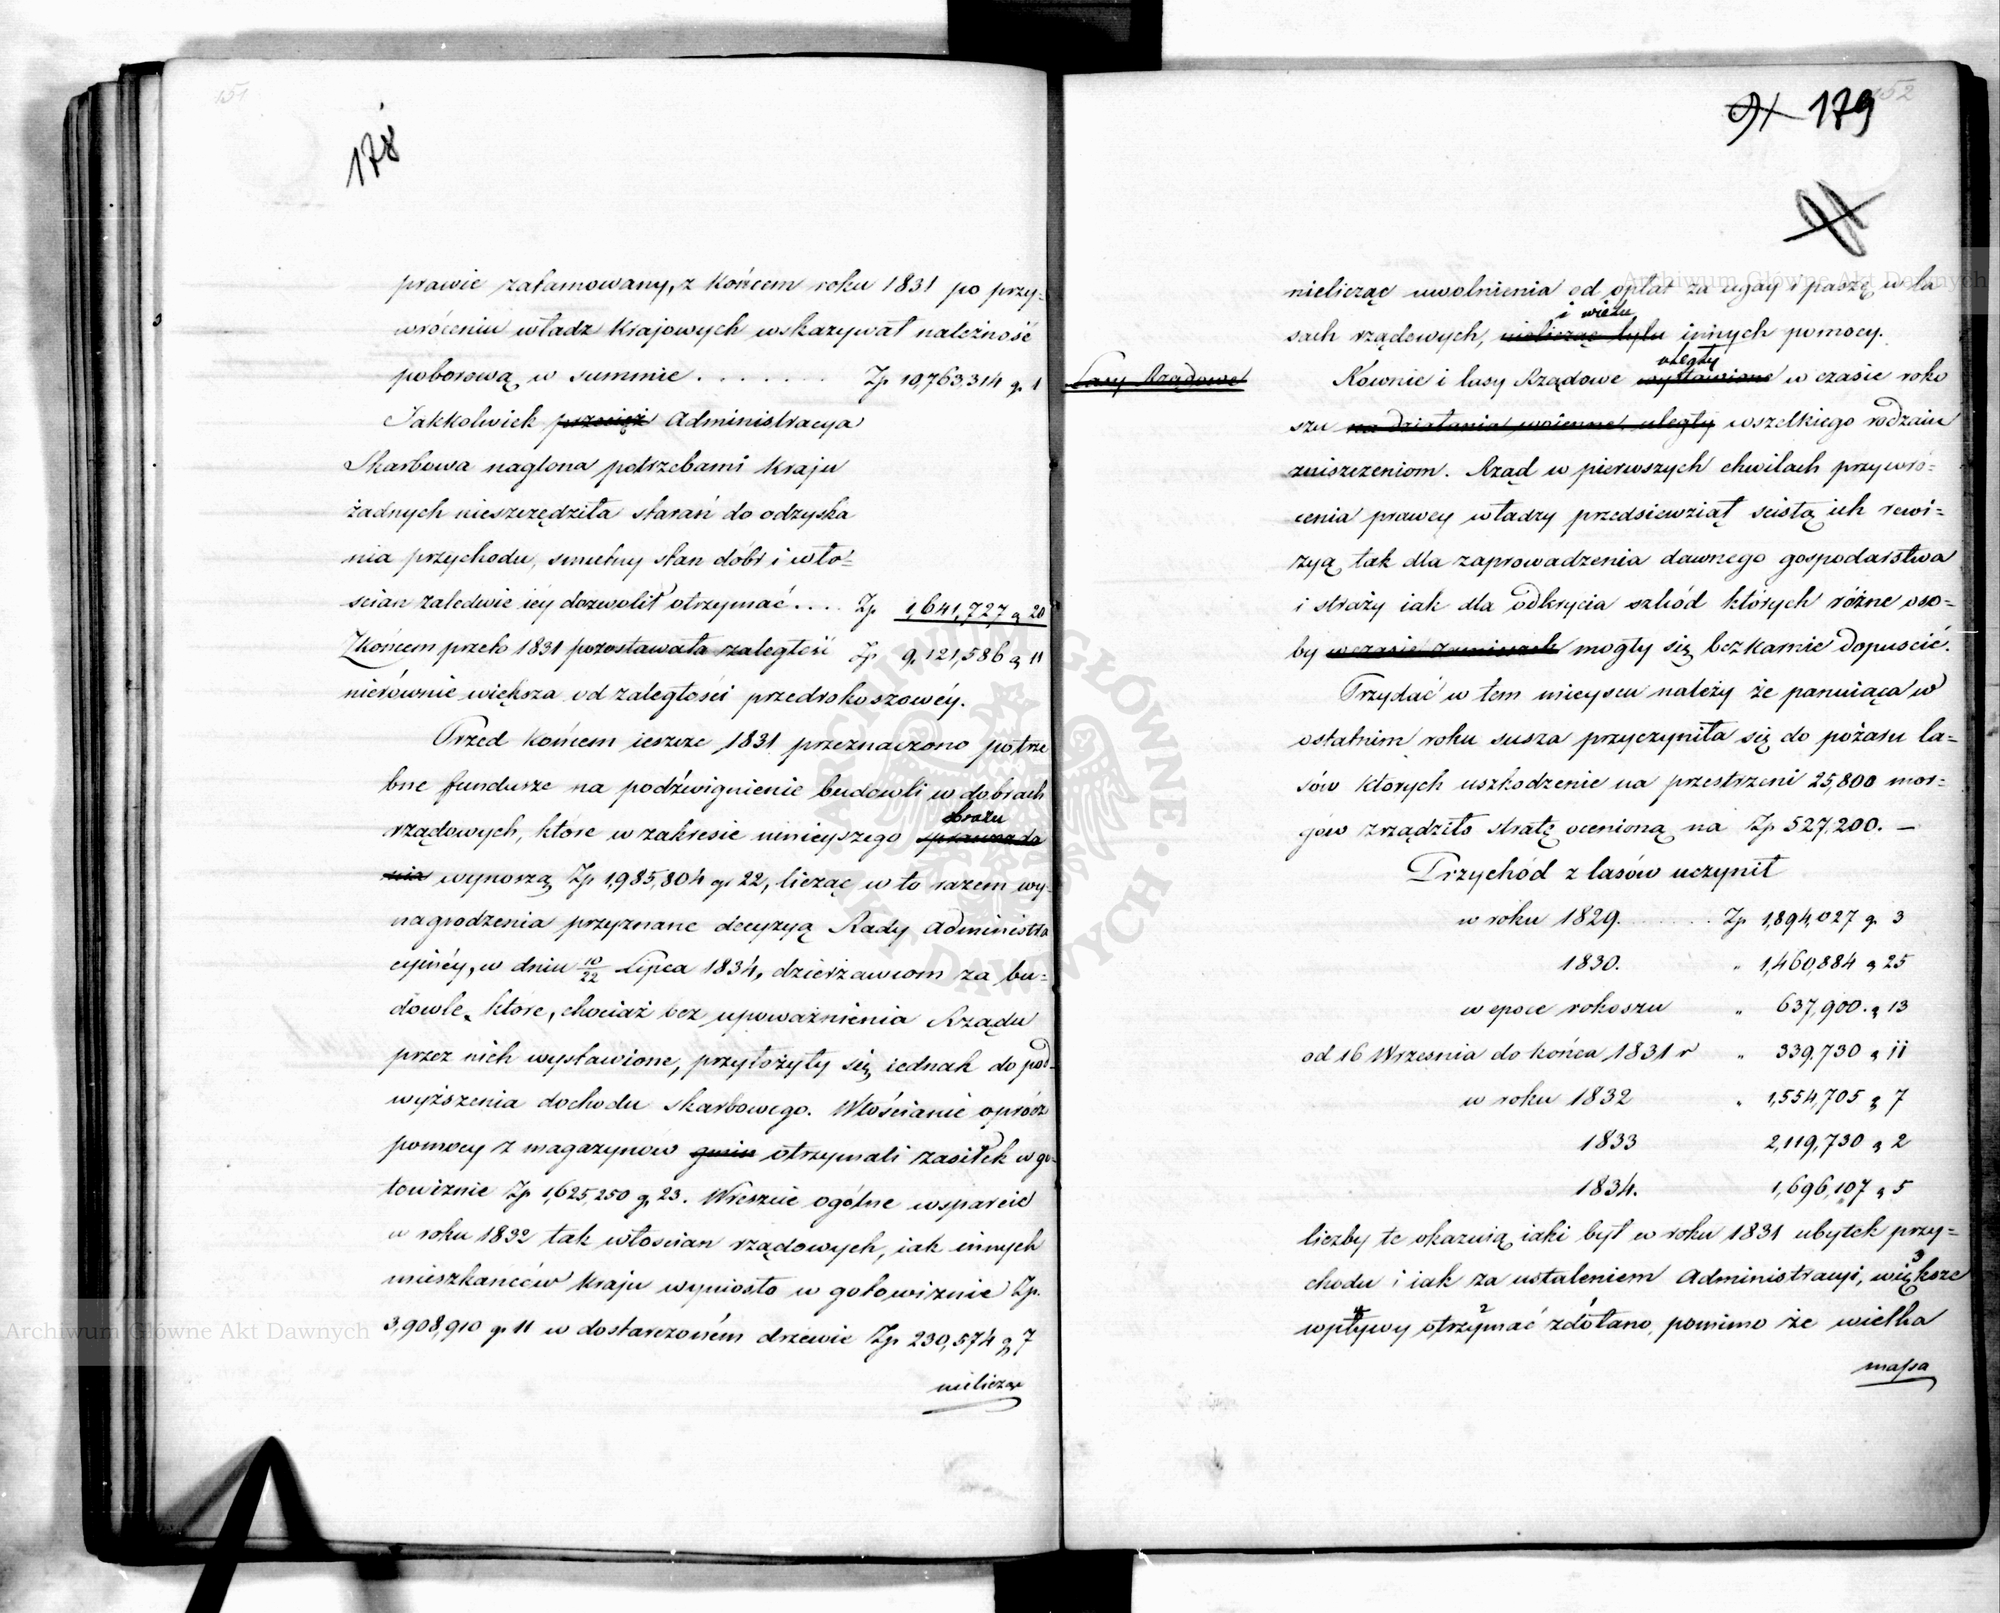 151
178
prawie zatamowany, z końcem roku 1831 po przy=
wróceniu władz Krajowych wskazywał należność
poborową w summie . . . . . . . Zp 10,763,314 g. 1
Jakkolwiek przecież Administracya
Skarbowa naglona potrzebami Kraju
żadnych nieszczędziła starań do odzyska
nia przychodu, smutny stan dóbr i wło=
ścian zaledwie iey dozwolił otrzymać . . . . Zp. 1,641,727 g 20
Z końcem przeto 1831 pozostawała zaległość Zp 9,121,586 g 11
nierównie większa od zaległości przedrokoszowéy.
Przed końcem ieszcze 1831 przeznaczono potrze
bne fundusze na podźwignienie budowli w dobrach
obrazu
rządowych, które w zakresie ninieyszego sprawozda
nia wynoszą Zp 1,985,804 gr 22, licząc w to razem wy-
nagrodzenia przyznane decyzyą Rady Administra
cyinéy, w dniu 10/22 Lipca 1834, dzierżawcom za bu=
dowle, które, chociaż bez upoważnienia Rządu
przez nich wystawione, przyłożyły się iednak do pod=
wyższenia dochodu Skarbowego. Włościanie oprócz
pomocy z magazynów gmin otrzymali zasiłek w go=
towiznie Zp 1,625,250 g. 23. Wreszcie ogólne wsparcie
w roku 1832 tak włościan rządowych, iak innych
mieszkańców Kraju wyniosło w gotowiznie Zp.
3,908,910 g. 11 w dostarczoném drzewie Zp 230,574 g 7
nielicząc
152
91 179
nielicząc uwolnienia od opłat za ugay i paszę w la
i wielu
sach rządowych, nielicząc tylu innych pomocy.
Lasy Rządowe
uległy
Rownie i lasy Rządowe wystawione w czasie roko
szu na działania woienne uległy wszelkiego rodzaiu
zniszczeniom. Rząd w pierwszych chwilach przywró=
cenia prawey władzy przedsiewziął scisłą ich rewi=
zyą, tak dla zaprowadzenia dawnego gospodarstwa
i straży iak dla odkrycia szkód których różne oso=
by w czasie zamieszek mogły się bezkarnie dopuscić.
Przydać w tem mieyscu należy że panuiąca w
ostatnim roku susza przyczyniła się do pożaru la=
sów których uszkodzenie na przestrzeni 25,800 mor=
gów zrządziło stratę ocenioną na Zp 527,200. —
Przychód z lasów uczynił
w roku 1829. . . . . . . Zp 1,894,027 g. 3
1830. " 1,460,884 g 25
w epoce rokoszu " 637,900. g 13
od 16 Wrzesnia do końca 1831 r " 339,730 g 11
w roku 1832 " 1,554,705 g 7
1833 2,119,730 g 2
1834. 1,696,107 g 5
liczby te okazuią iaki był w roku 1831 ubytek przy=
chodu i iak za ustaleniem Administracyi, większe
3
4 2
wpływy otrzymać zdołano, pomimo że wielka
massa